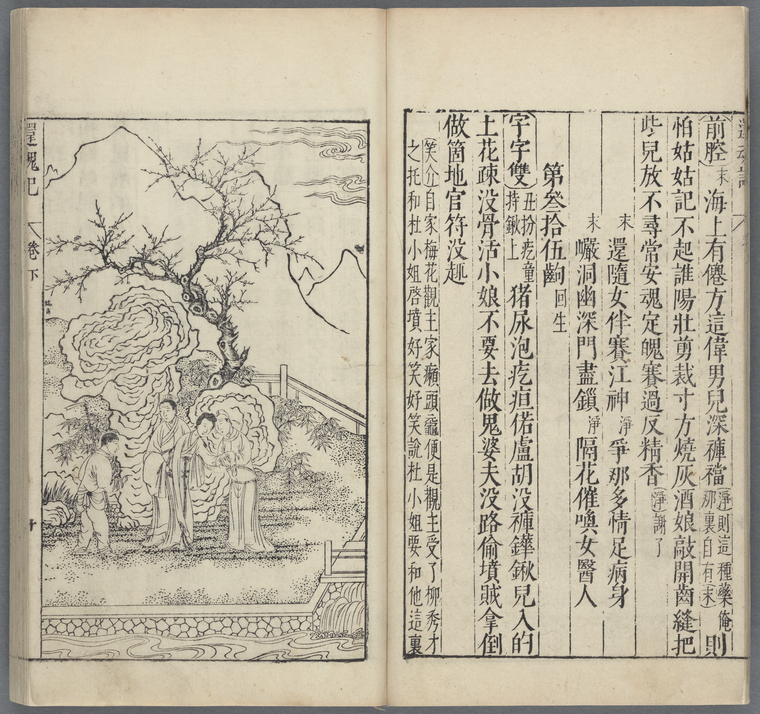 前腔末海上有僊方這偉男兒深褲襠淨則這種藥俺那裏自有末則
怕姑姑記不起誰陽壯剪裁寸方燒灰酒娘敲開齒縫把
些兒放不尋常安魂定魄賽過反精香淨謝了
末還隨女伴賽江神淨爭那多情足病身
末巖洞幽深門盡鎖淨隔花催喚女醫人
第叄拾伍齣回生
字字雙丑扮疙童持鍬上豬尿泡疙疸偌盧胡没褲鏵鍬兒入的
土花疎没骨活小娘不要去做鬼婆夫没路偷墳賊拿倒
做箇地官符没趣
笑介自家梅花觀主家癩頭黿便是觀主受了柳秀才
之托和杜小姐啓墳好笑好笑說杜小姐要和他這裏
還魂記
卷下